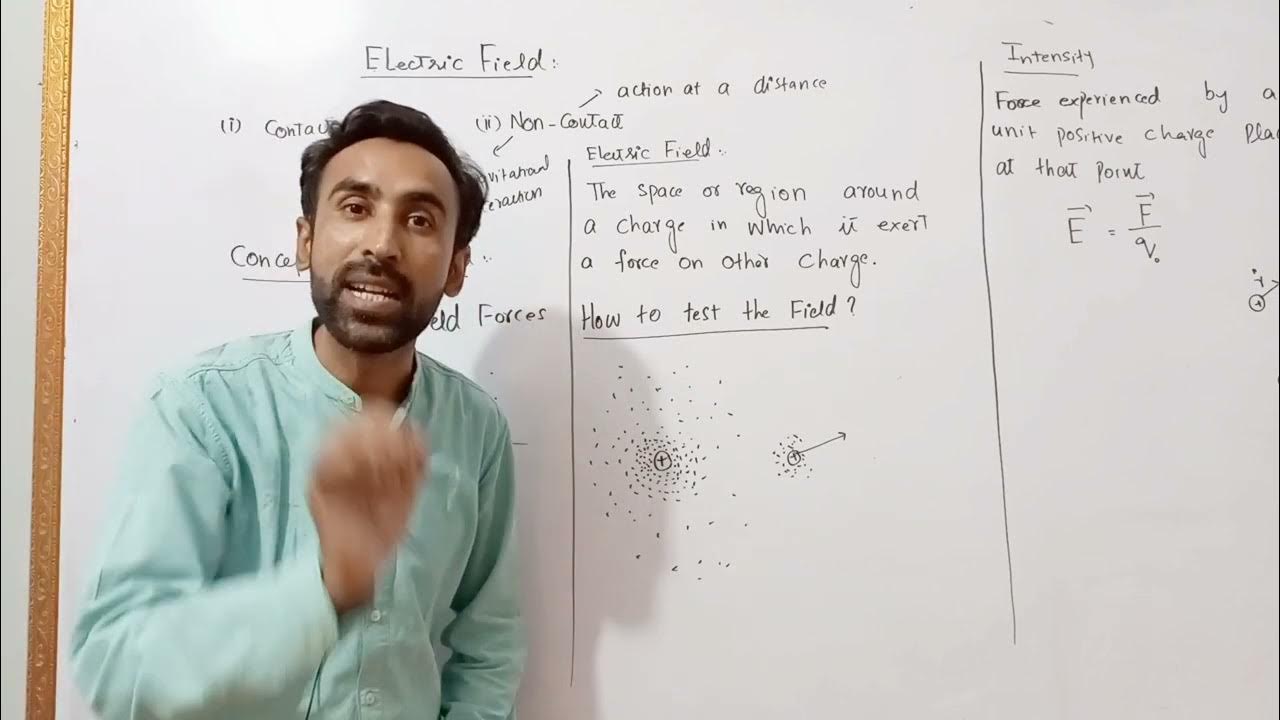 Electric Field:
action at a distance
(i)
(ii) Non-Contact
Field Forces
Electric Field:
The space or region around
a charge in which it exert
a force on other charge.
How to test the Field?
+
+
Intensity
Force experienced by a
unit positive charge
at that point
E = F/q₀
+
+